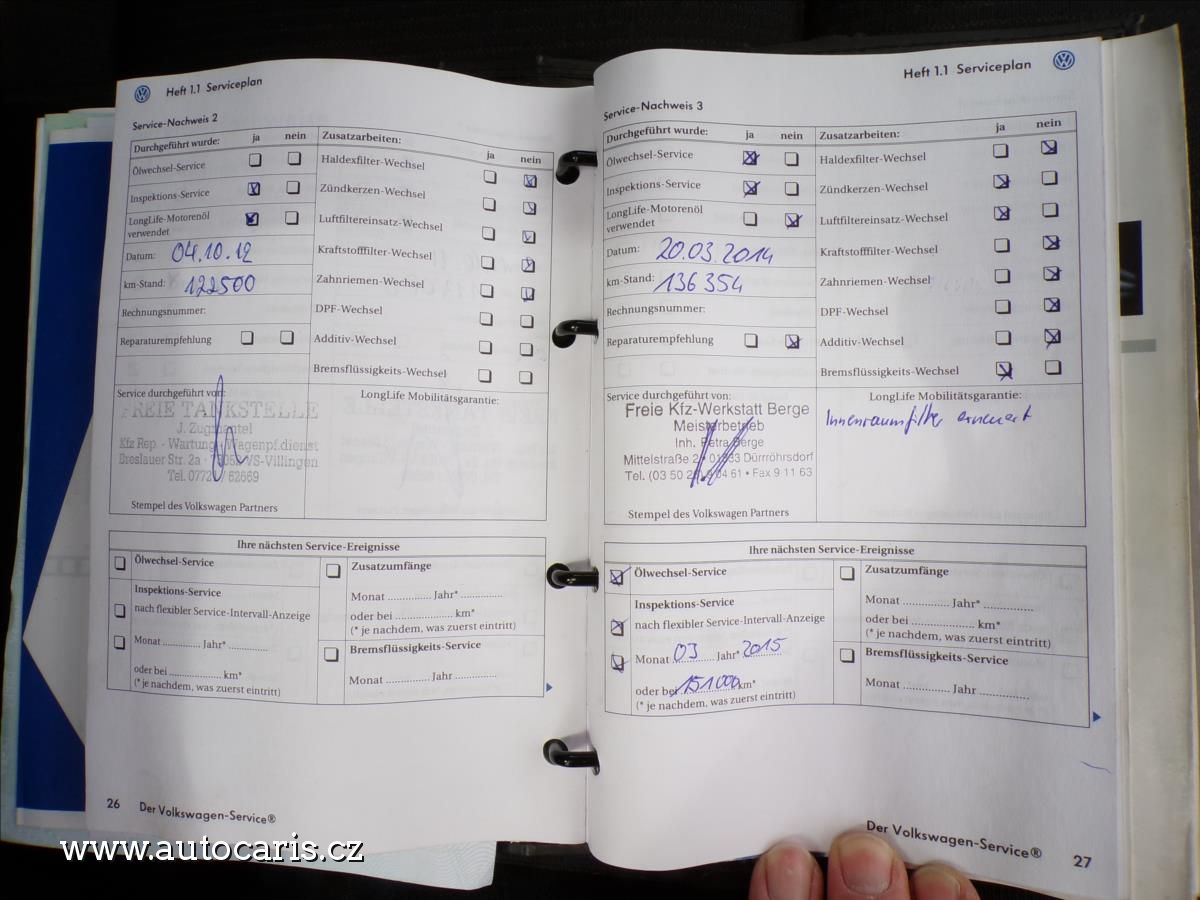 Heft 1.1 Serviceplan
Service-Nachweis 2
Durchgeführt wurde: ja nein
Ölwechsel-Service
Inspektions-Service
LongLife-Motorenöl
verwendet
Datum: 04.10.12
km-Stand: 122500
Rechnungsnummer:
Reparaturempfehlung
Zusatzarbeiten: ja nein
Haldexfilter-Wechsel
Zündkerzen-Wechsel
Luftfiltereinsatz-Wechsel
Kraftstofffilter-Wechsel
Zahnriemen-Wechsel
DPF-Wechsel
Additiv-Wechsel
Bremsflüssigkeits-Wechsel
Service durchgeführt von:
FREIE TANKSTELLE
J.
Kfz Rep. - Wartung - Wagenpf.dienst
Breslauer Str. 2a VS-Villingen
Tel. 62669
Stempel des Volkswagen Partners
LongLife Mobilitätsgarantie:
Ihre nächsten Service-Ereignisse
Ölwechsel-Service
Inspektions-Service
nach flexibler Service-Intervall-Anzeige
Monat ............. Jahr* .............
oder bei .................. km*
(* je nachdem, was zuerst eintritt)
Zusatzumfänge
Monat ............. Jahr* .............
oder bei .................. km*
(* je nachdem, was zuerst eintritt)
Bremsflüssigkeits-Service
Monat ............. Jahr .............
26 Der Volkswagen-Service®
Heft 1.1 Serviceplan
Service-Nachweis 3
Durchgeführt wurde: ja nein
Ölwechsel-Service
Inspektions-Service
LongLife-Motorenöl
verwendet
Datum: 20.03.2014
km-Stand: 136 354
Rechnungsnummer:
Reparaturempfehlung
Zusatzarbeiten: ja nein
Haldexfilter-Wechsel
Zündkerzen-Wechsel
Luftfiltereinsatz-Wechsel
Kraftstofffilter-Wechsel
Zahnriemen-Wechsel
DPF-Wechsel
Additiv-Wechsel
Bremsflüssigkeits-Wechsel
Service durchgeführt von:
Freie Kfz-Werkstatt Berge
Meisterbetrieb
Inh. Petra Berge
Mittelstraße Dürrröhrsdorf
Tel. (03 50 61 • Fax 9 11 63
Stempel des Volkswagen Partners
LongLife Mobilitätsgarantie:
Innenraumfilter erneuert
Ihre nächsten Service-Ereignisse
Ölwechsel-Service
Inspektions-Service
nach flexibler Service-Intervall-Anzeige
Monat 03 Jahr* 2015
oder bei 151000 km*
(* je nachdem, was zuerst eintritt)
Zusatzumfänge
Monat ............. Jahr* .............
oder bei .................. km*
(* je nachdem, was zuerst eintritt)
Bremsflüssigkeits-Service
Monat ............. Jahr .............
Der Volkswagen-Service® 27
www.autocaris.cz